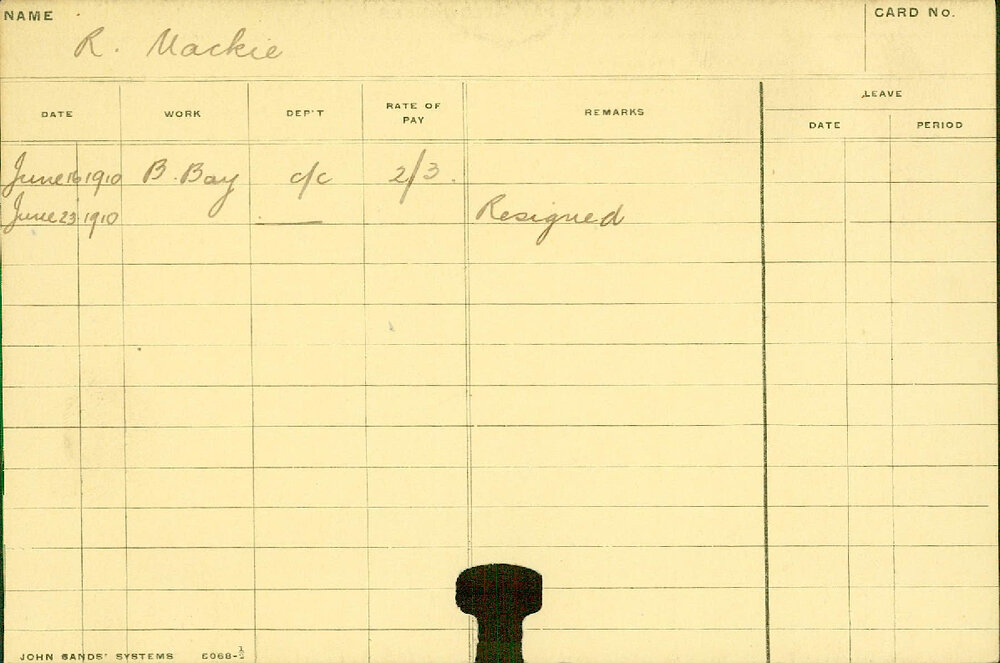 NAME
CARD No.
R. Mackie
DATE WORK DEP'T RATE OF PAY REMARKS LEAVE
DATE PERIOD
June 16 1910 B. Bay c/c 2/3.
June 23 1910 — Resigned
JOHN SANDS' SYSTEMS 6068-½